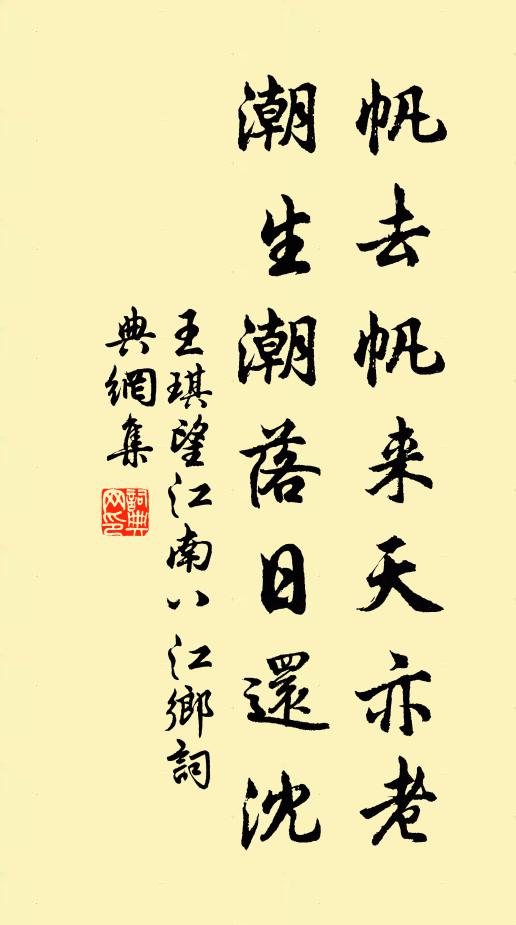 帆去帆来天亦老
潮生潮落日還沈
王琪望江南八江鄉詞
典網集
詞典網印